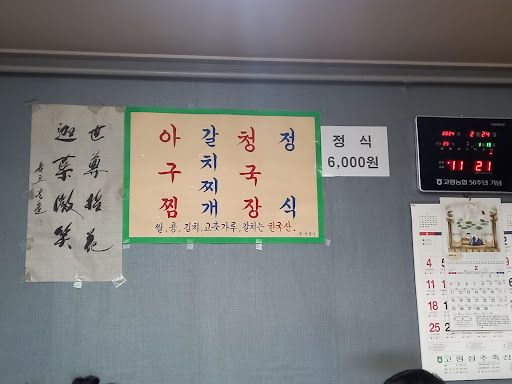 世尊拈花
迦葉微笑
아구찜
갈치찌개
청국장
정식
쌀, 콩, 김치, 고춧가루, 갈치는 한국산.
정 식
6,000원
2024 2 24
11 21
고령농협 50주년 기념
2
4
11
18
25
고령성주축산